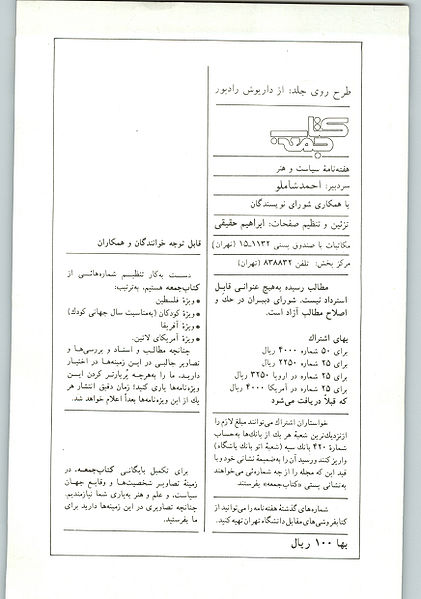 طرح روی جلد: از داریوش رادپور
کتاب جمعه
هفته‌نامهٔ سیاست و هنر
سردبیر: احمد شاملو
با همکاری شورای نویسندگان
تزئین و تنظیم صفحات: ابراهیم حقیقی
مکاتبات با صندوق پستی ۱۱۳۲-۱۵ (تهران)
مرکز پخش: تلفن ۸۳۸۸۳۲ (تهران)
مطالب رسیده به‌هیچ عنوانی قابل
استرداد نیست. شورای دبیران در حك و
اصلاح مطالب آزاد است.
بهای اشتراك
برای ۵۰ شماره ۴۰۰۰ ریال
برای ۲۵ شماره ۲۲۵۰ ریال
برای ۲۵ شماره در اروپا ۳۲۵۰ ریال
برای ۲۵ شماره در آمریکا ۴۰۰۰ ریال
که قبلاً دریافت می‌شود
خواستاران اشتراك می‌توانند مبلغ لازم را
از نزدیك‌ترین شعبهٔ هر یك از بانك‌ها به‌حساب
شمارهٔ ۴۲۰ بانك سپه (شعبهٔ اتو بانك باشگاه)
واریز کنند و رسید آن را به‌ضمیمهٔ نشانی خود و با
قید این که مجله را از چه شماره‌ئی می‌خواهند
به‌نشانی پستی «کتاب‌جمعه» بفرستند
شماره‌های گذشتهٔ هفته‌نامه را می‌توانید از
کتابفروشی‌های مقابل دانشگاه تهران تهیه کنید.
بها ۱۰۰ ریال
قابل توجه خوانندگان و همکاران
دست به‌کار تنظیم شماره‌هائی از
کتاب‌جمعه هستیم، به‌ترتیب:
• ویژهٔ فلسطین
• ویژهٔ کودکان (به‌مناسبت سال جهانی کودك)
• ویژهٔ آفریقا
• ویژهٔ آمریکای لاتین.
چنانچه مطالب و اسناد و بررسی‌ها و
تصاویر جالبی در این زمینه‌ها در اختیار
دارید، ما را به‌هرچه پُربارتر کردن این
ویژه‌نامه‌ها یاری کنید؛ زمان دقیق انتشار هر
یك از این ویژه‌نامه‌ها بعداً اعلام خواهد شد.
برای تکمیل بایگانی کتاب‌جمعه، در
زمینهٔ تصاویر شخصیت‌ها و وقایع جهان
سیاست، و علم و هنر به‌یاری شما نیازمندیم.
چنانچه تصاویری در این زمینه‌ها دارید برای
ما بفرستید.